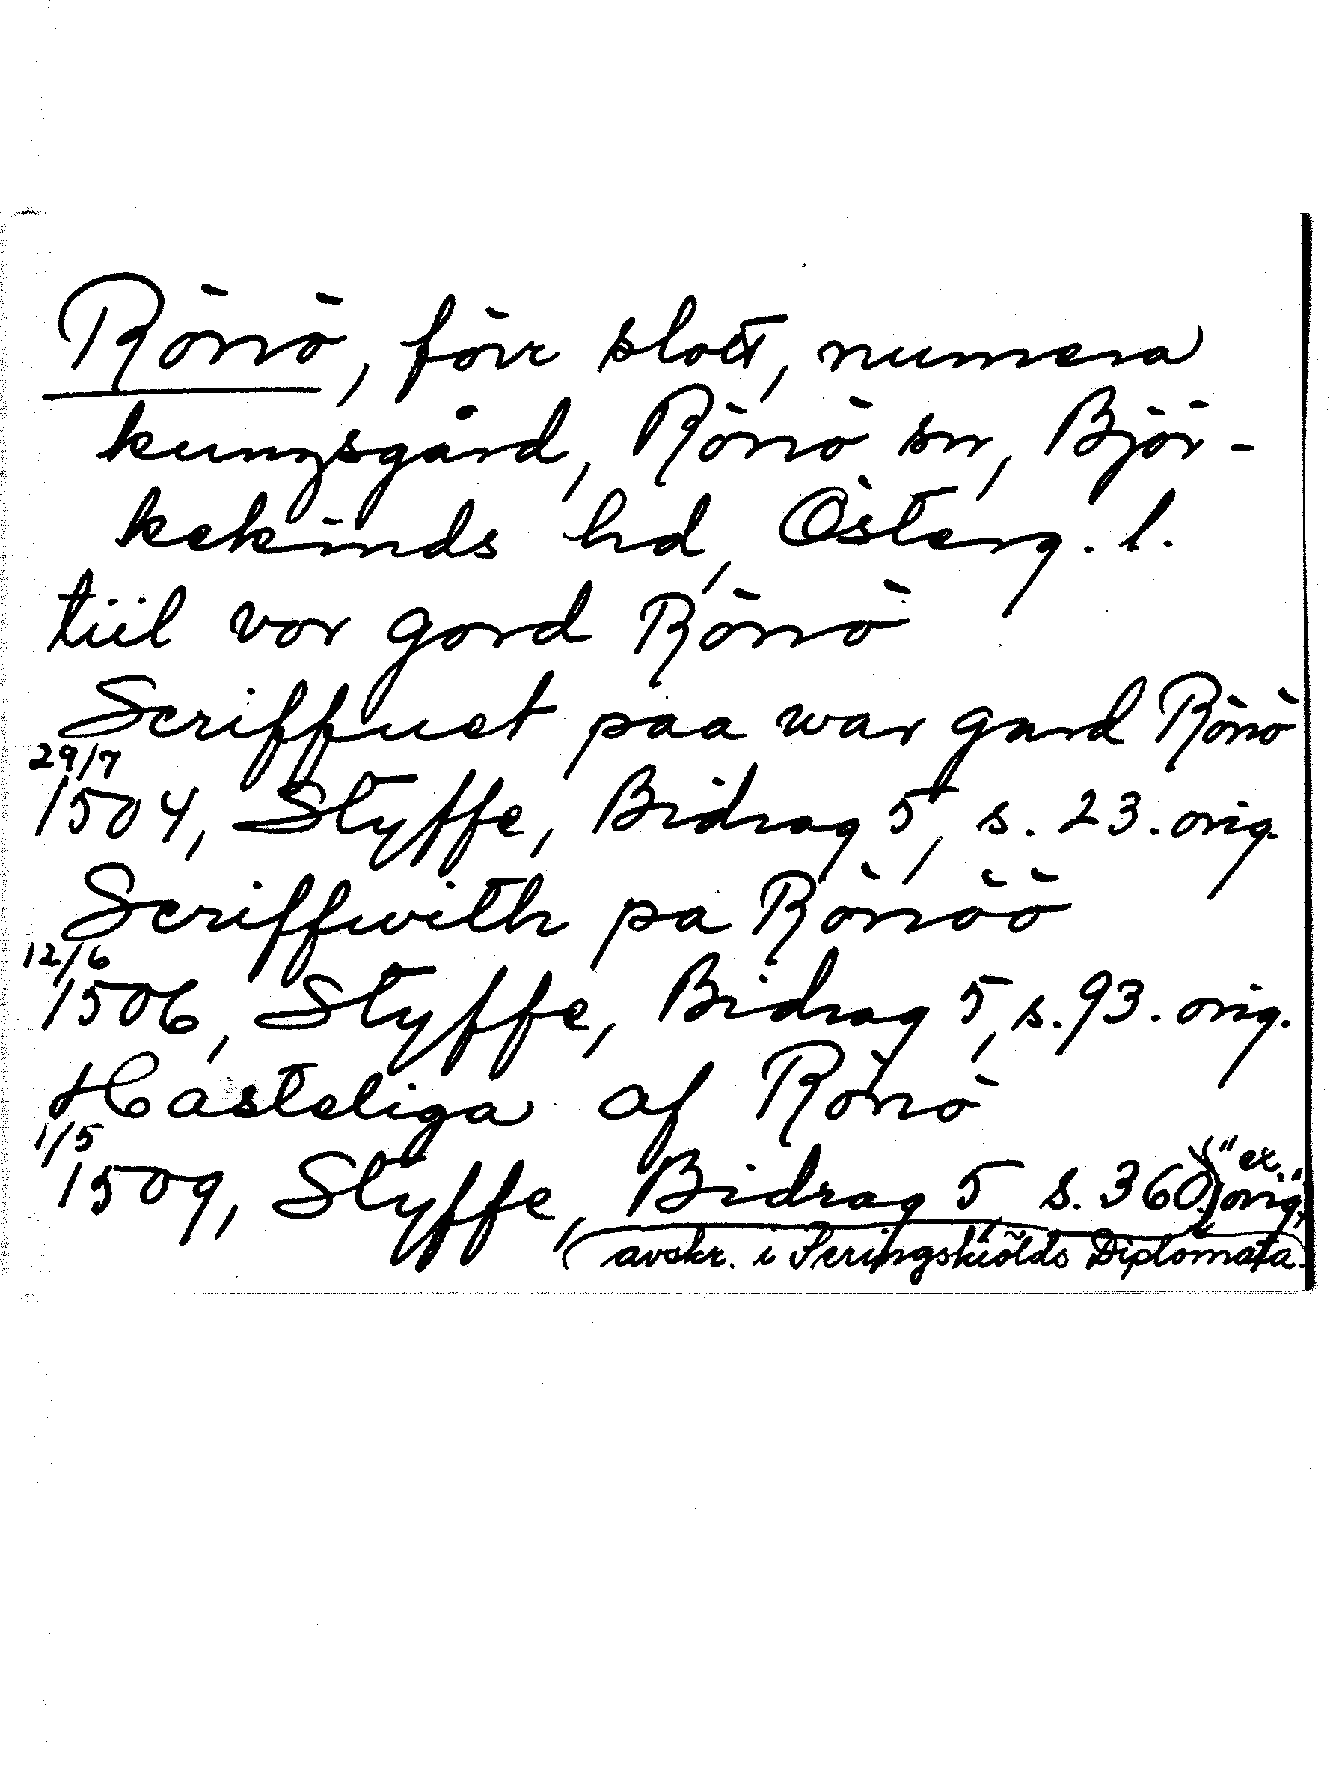 Rönö, förr slott, numera
kungsgård, Rönö sn, Björ-
kekinds hd, Österg. l.
tiil vor gord Rönö
Scriffuet paa war gard Rönö
29/7
1504, Styffe, Bidrag 5, s. 23. orig.
Scriffwith pa Rönöö
12/6
1506, Styffe, Bidrag 5, s. 93. orig.
Hasteliga af Rönö
1/5
1509, Styffe, Bidrag 5 s. 360. "ex. orig."
(avskr. i Peringskiölds Diplomata.